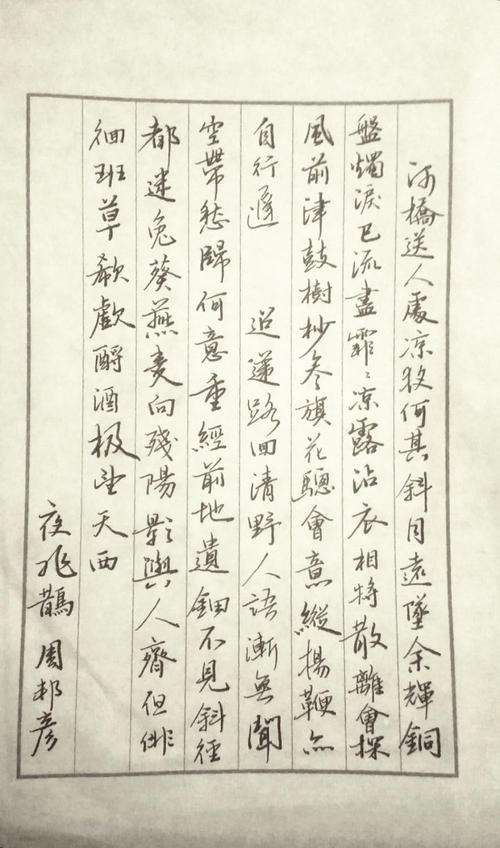 河橋送人處涼夜何其斜月遠墜余輝銅
盤燭淚已流盡霏〻凉露沾衣相將散離會探
風前津鼓樹杪參旗花驄會意縱揚鞭亦
自行遲　迢遞路回清野人語漸無聞
空帶愁歸何意重經前地遺鈿不見斜徑
都迷兔葵燕麦向殘陽影與人齊但俳
徊班草欷歔酹酒極望天西
夜飛鵲 周邦彥